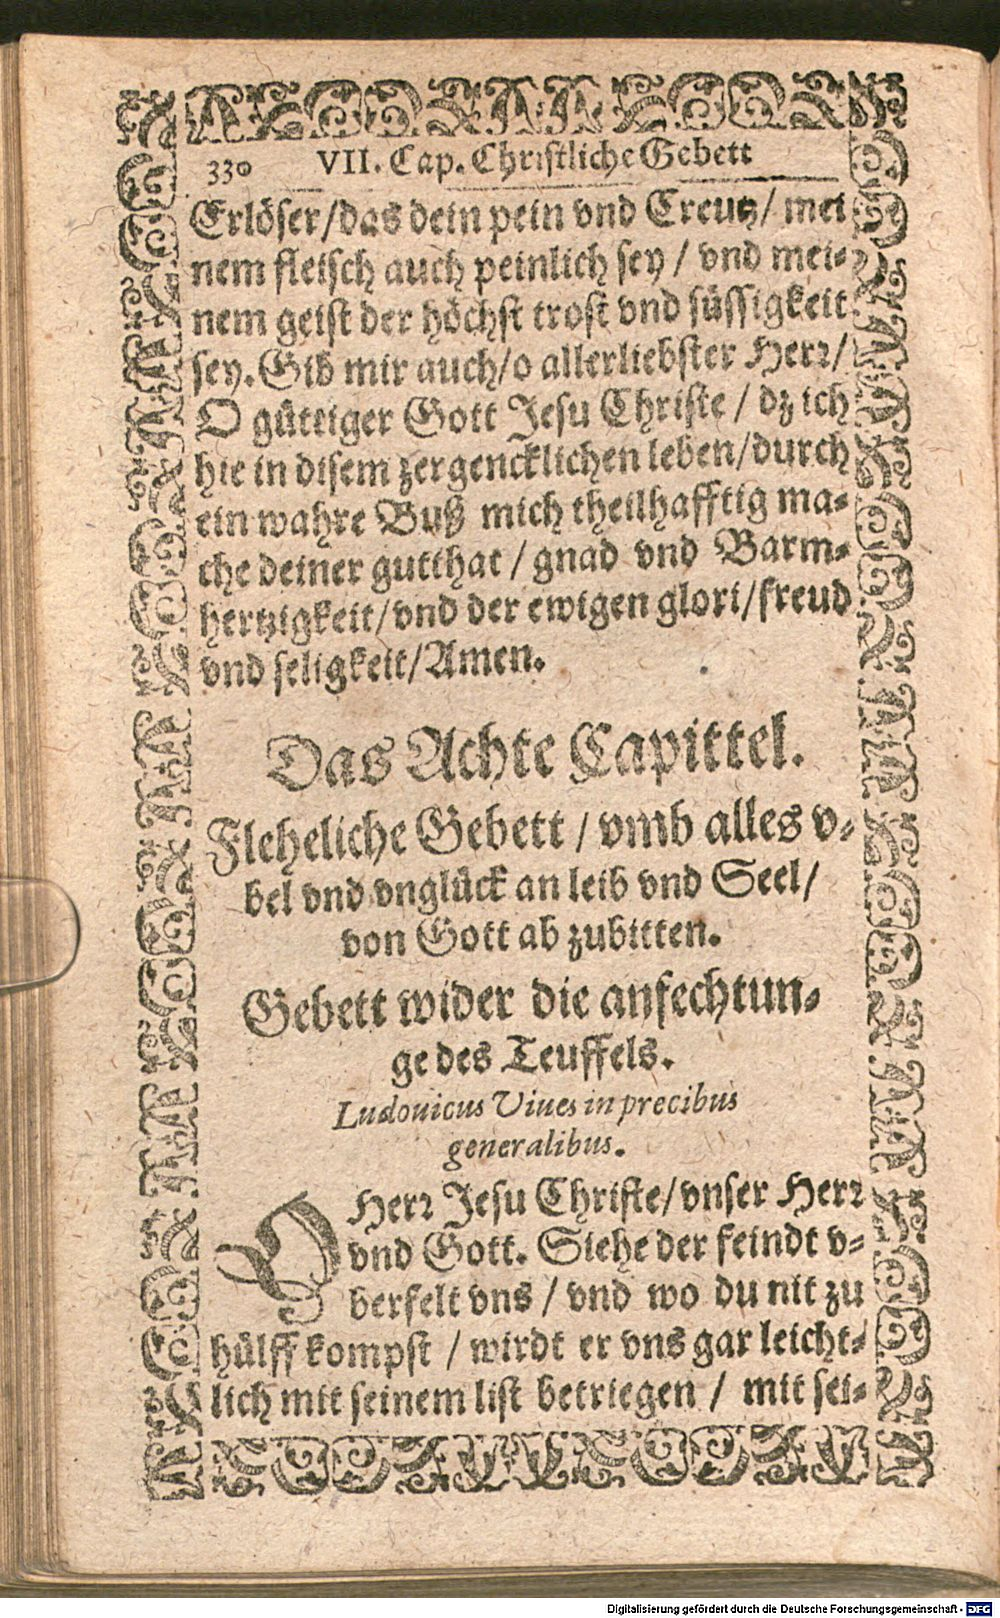 330 VII. Cap. Christliche Gebett
Erlöser/das dein pein vnd Creutz/ mei
nem fleisch auch peinlich sey / vnd mei-
nem geist der höchst trost vnd süssigkeit
sey. Gib mir auch/o allerliebster Herr/
O gůttiger Gott Jesu Christe / dz ich
hie in disem zergencklichen leben/durch
ein wahre Buß mich theilhafftig ma-
che deiner gutthat / gnad vnd Barm-
hertzigkeit/vnd der ewigen glori/freud
vnd seligkeit/Amen.
Das Achte Capittel.
Fleheliche Gebett / vmb alles v-
bel vnd vnglück an leib vnd Seel/
von Gott ab zubitten.
Gebett wider die anfechtun-
ge des Teuffels.
Ludouicus Viues in precibus
generalibus.
O Herr Jesu Christe/vnser Herr
vnd Gott. Siehe der feindt v-
berfelt vns / vnd wo du nit zu
hülff kompst / wirdt er vns gar leicht-
lich mit seinem list betriegen / mit sei-
Digitalisierung gefördert durch die Deutsche Forschungsgemeinschaft - DFG